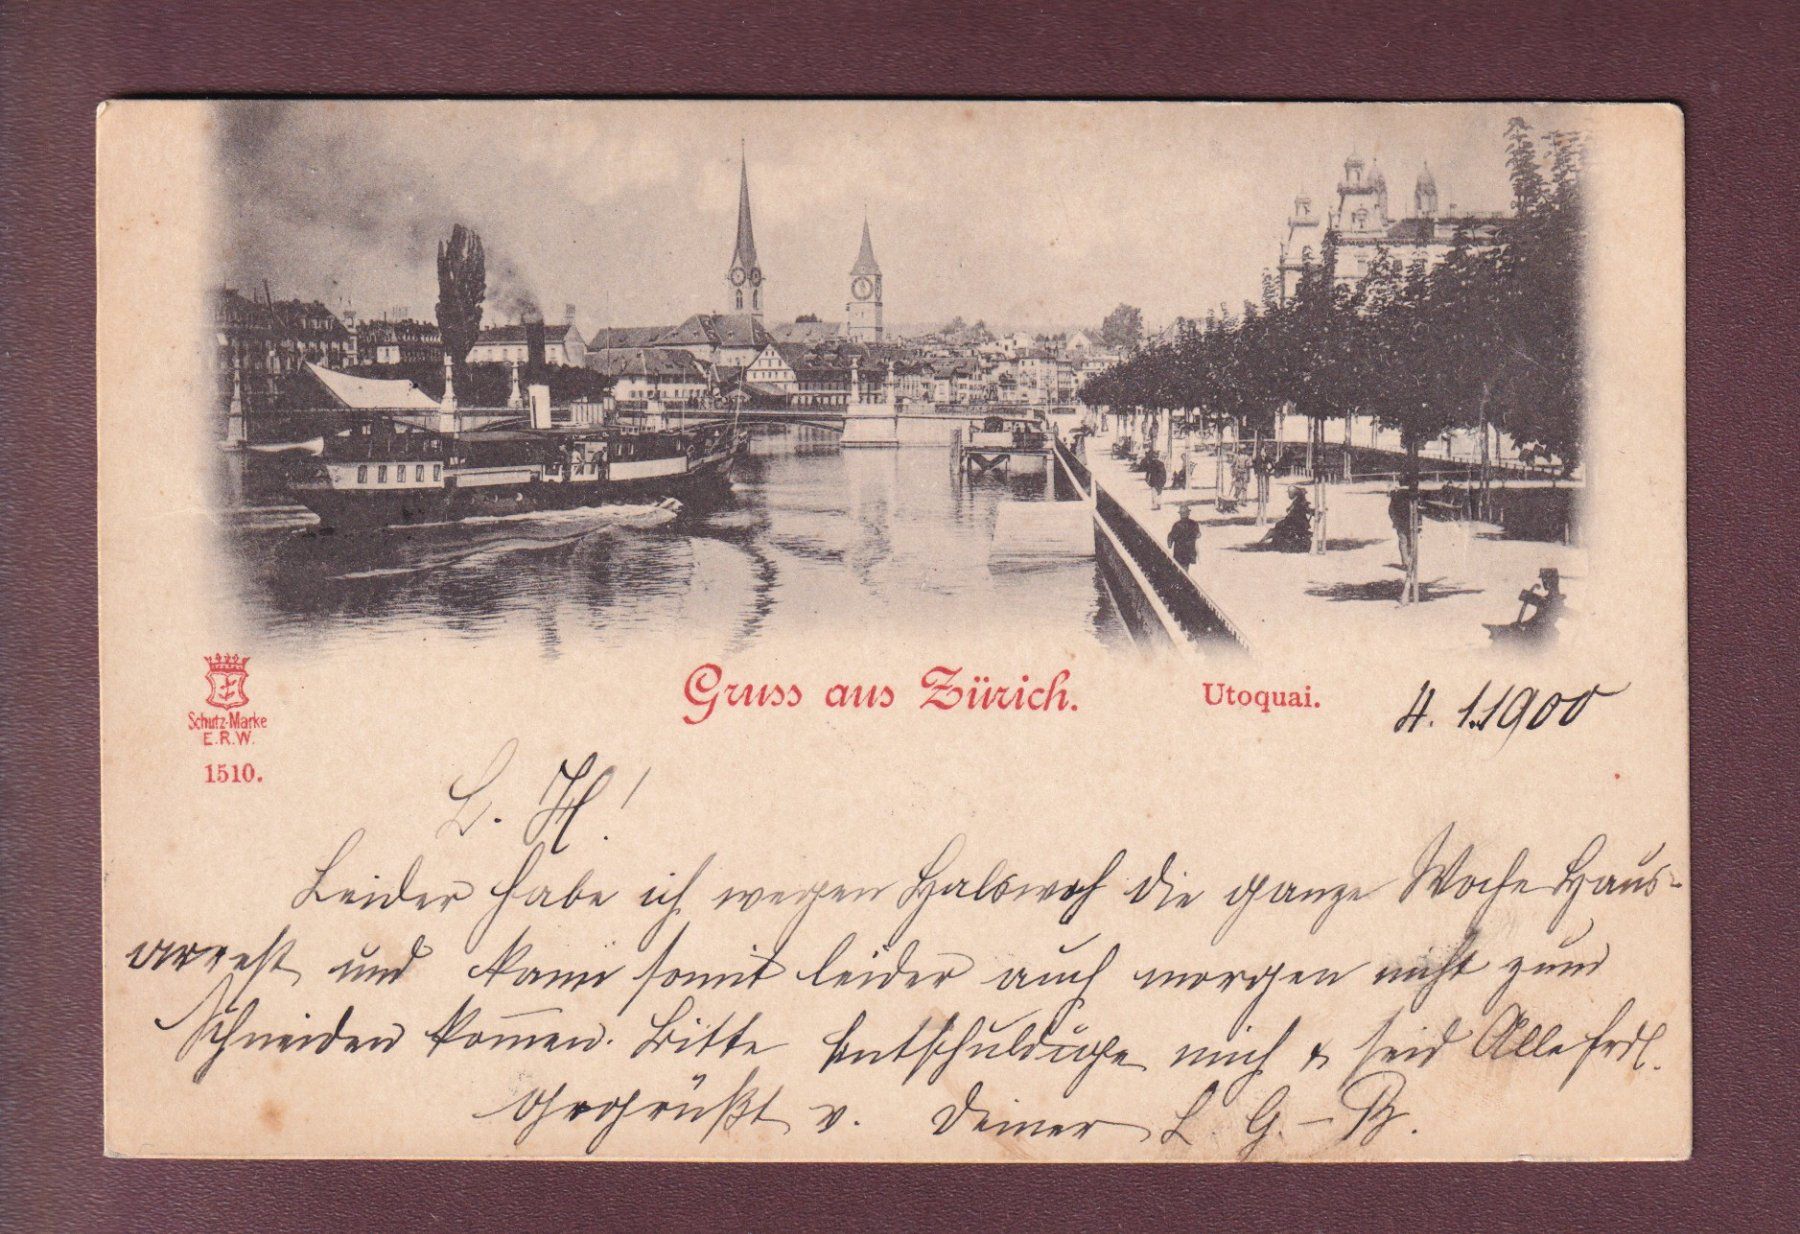 Gruss aus Zürich.
Utoquai.
4. 1. 1900
Schutz-Marke
E.R.W.
1510.
L. H!
Leider habe ich wegen Halsweh die ganze Woche Haus-
arrest und kann somit leider auch morgen nicht zum
Schneiden kommen. Bitte entschuldige mich & seid Alle frdl.
gegrüßt v. Deiner L. G.-B.